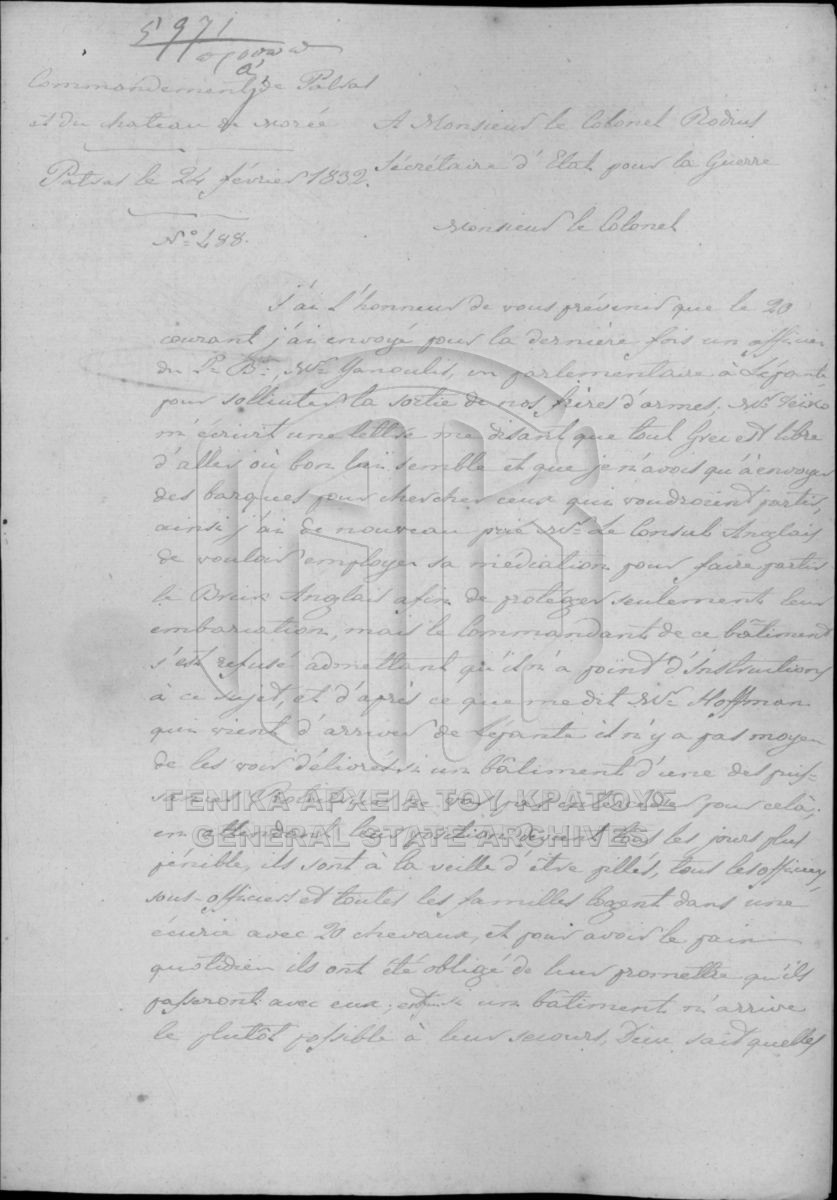 5971
Commandement de Patras
et du chateau de Morée
A Monsieur le Colonel Rodius
Sécrétaire d'Etat pour la Guerre
Patras le 24 février 1832.
N.º 488.
Monsieur le Colonel
J'ai l'honneur de vous prévenir que le 20
courant j'ai envoyé pour la dernière fois un officier
du Mr Yanoulis, en parlementaire à Lépante
pour solliciter la sortie de nos frères d'armes. Mr
m'écrivit une lettre me disant que tout Grec est libre
d'aller où bon lui semble et que je n'avois qu'à envoyer
des barques pour chercher ceux qui voudroient partir,
ainsi j'ai de nouveau prié Mr Le Consul Anglais
de vouloir employer sa médiation pour faire partir
le Brick Anglais afin de protéger seulement leur
embarcation, mais le Commandant de ce bâtiment
s'est refusé admettant qu'il n'a point d'instructions
à ce sujet, et d'après ce que me dit Mr Hoffman
qui vient d'arriver de Lépante il n'y a pas moyen
de les voir délivrés si un bâtiment d'une des puis-
pour celà;
en attendant leur position devient tous les jours plus
pénible, ils sont à la veille d'être pillés, tous les officiers,
sous-officiers et toutes les familles logent dans une
écurie avec 20 chevaux, et pour avoir le pain
quotidien ils ont été obligé de leur promettre qu'ils
passeront avec eux; si un bâtiment n'arrive
le plutôt possible à leur secours, Dieu sait quelles
ΓΕΝΙΚΑ ΑΡΧΕΙΑ ΤΟΥ ΚΡΑΤΟΥΣ
GENERAL STATE ARCHIVES